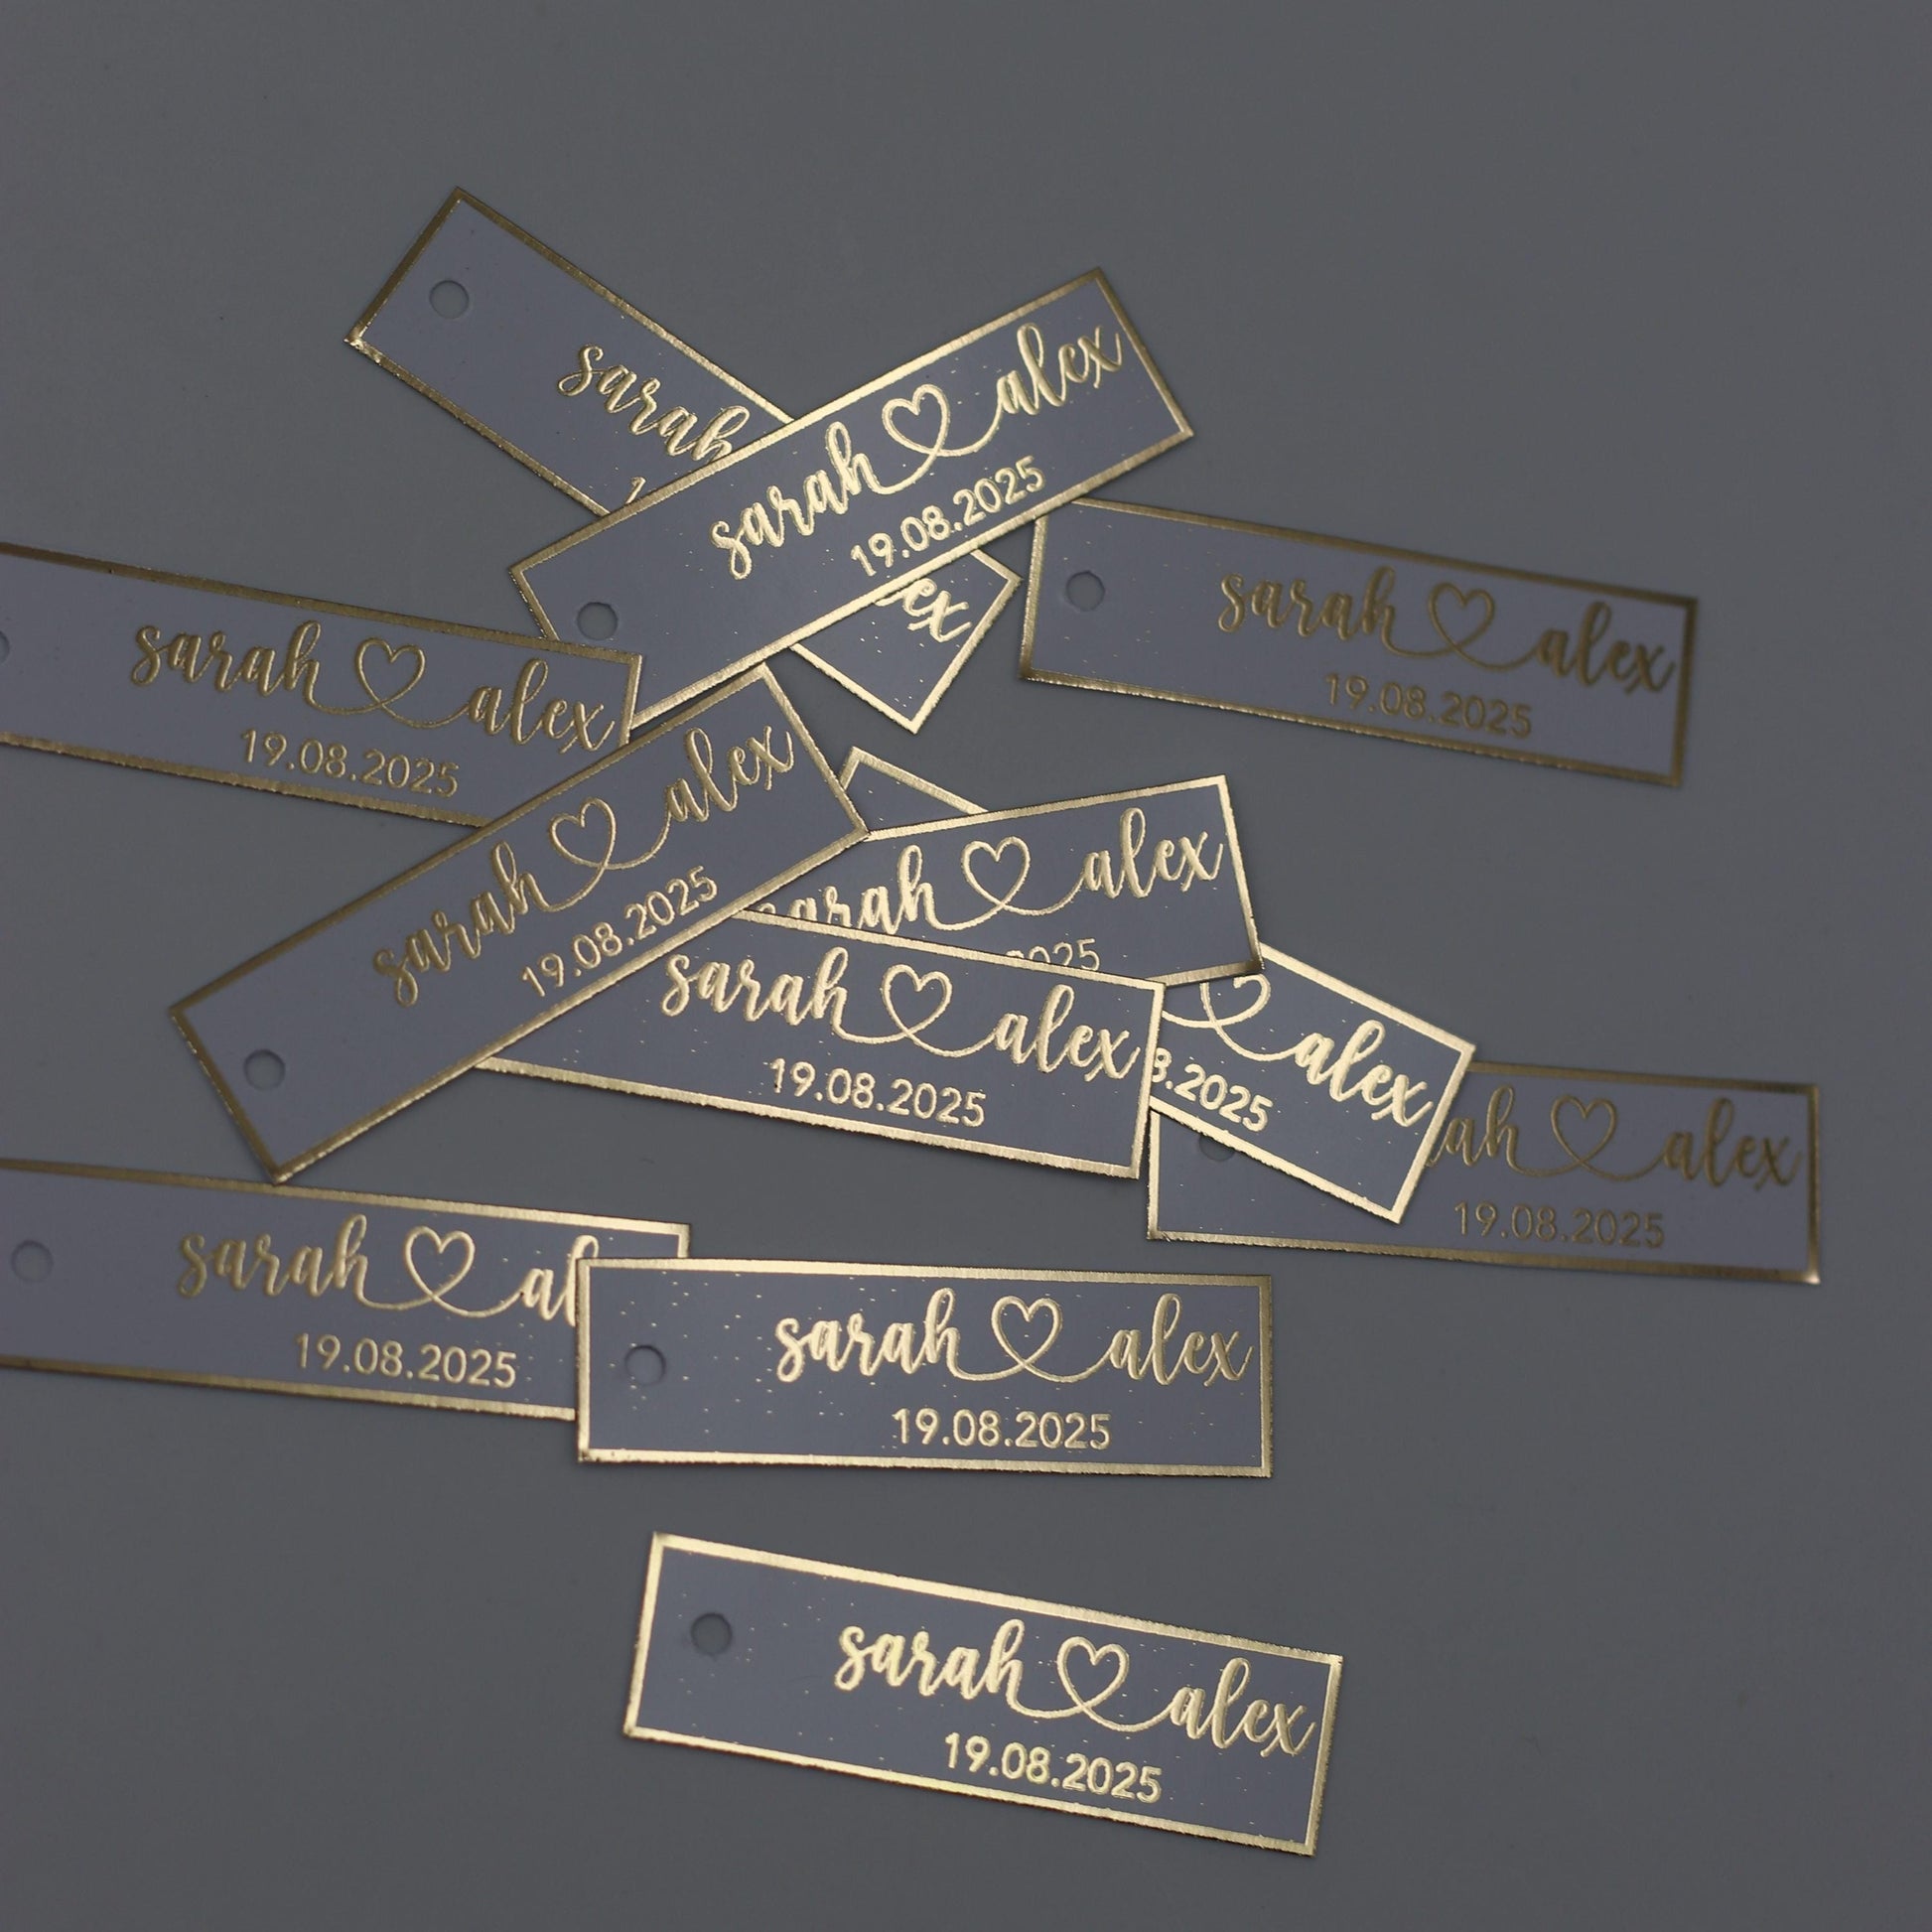 sarah
sarah alex
19.08.2025
ex
sarah alex
19.08.2025
sarah alex
19.08.2025
sarah alex
19.08.2025
sarah alex
2025
sarah alex
19.08.2025
alex
8.2025
ah alex
19.08.2025
sarah al
19.08.2025
sarah alex
19.08.2025
sarah alex
19.08.2025